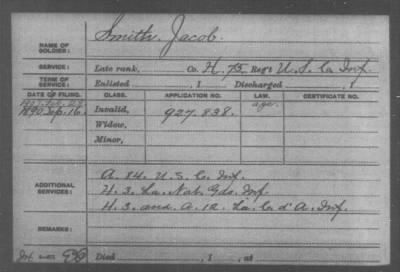 Smith, Jacob.
NAME OF SOLDIER:
SERVICE: Late rank, Co. H, 75 Reg't U.S.C. Inf.
TERM OF SERVICE: Enlisted , 1 Discharged , 1
DATE OF FILING. CLASS. APPLICATION NO. LAW. CERTIFICATE NO.
1890 Sep. 16 Invalid, 927.838.
Widow,
Minor,
A. 84. U.S.C. Inf.
ADDITIONAL SERVICES: H. 3. La. Nat. Gds. Inf.
H. 3. and. A. 12. La. C. d'A. Inf.
REMARKS:
Died , 1 , at